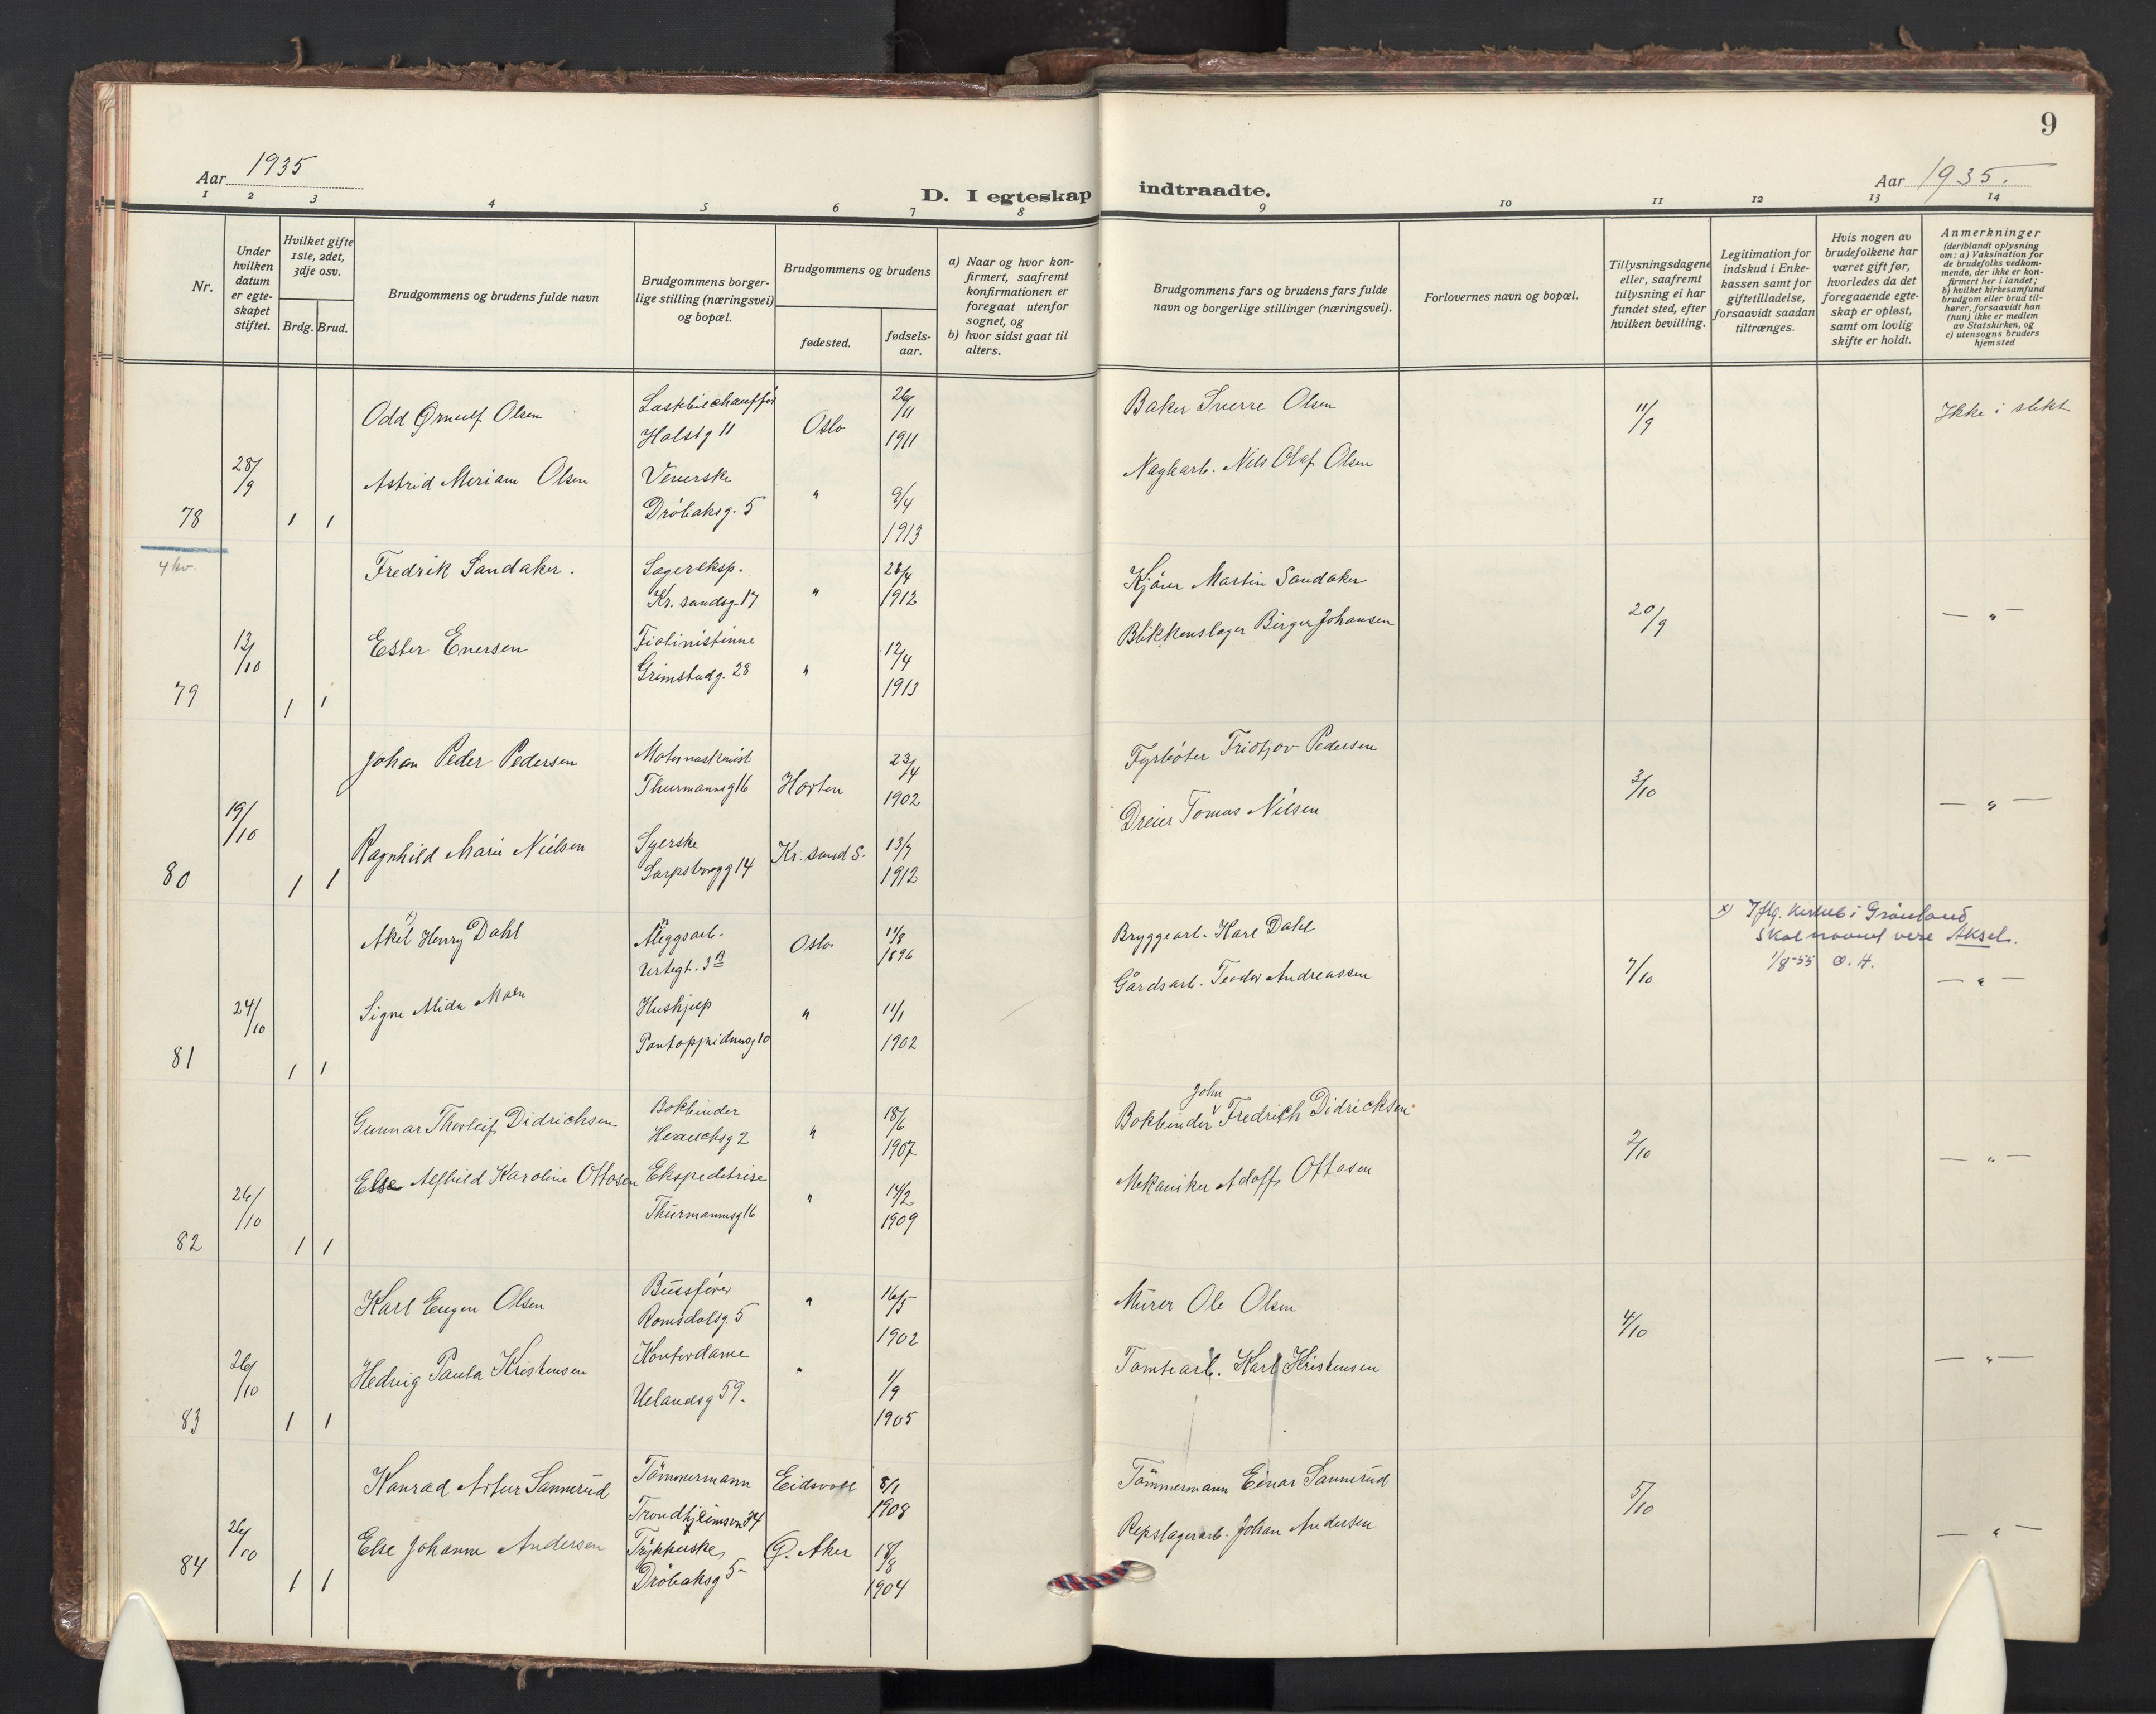 9
Aar 1935
D. I egteskap indtraadte.
Aar 1935.
1 2 3 4 5 6 7 8 9 10 11 12 13 14
Nr.
Under
hvilken
datum
er egte-
skapet
stiftet.
Hvilket gifte
1ste, 2det,
3dje osv.
Brdg. Brud.
Brudgommens og brudens fulde navn
Brudgommens borger-
lige stilling (næringsvei)
og bopæl.
Brudgommens og brudens
fødested.
fødsels-
aar.
a) Naar og hvor kon-
firmert, saafremt
konfirmationen er
foregaat utenfor
sognet, og
b) hvor sidst gaat til
alters.
Brudgommens fars og brudens fars fulde
navn og borgerlige stillinger (næringsvei).
Forlovernes navn og bopæl.
Tillysningsdagene
eller, saafremt
tillysning ei har
fundet sted, efter
hvilken bevilling.
Legitimation for
indskud i Enke-
kassen samt for
giftetilladelse,
forsaavidt saadan
tiltrænges.
Hvis nogen av
brudefolkene har
været gift før,
hvorledes da det
foregaaende egte-
skap er opløst,
samt om lovlig
skifte er holdt.
Anmerkninger
(deriblandt oplysning
om: a) Vaksination for
de brudefolks vedkom-
mende, der ikke er kon-
firmert her i landet;
b) hvilket kirkesamfund
brudgom eller brud til-
hører, forsaavidt han
(hun) ikke er medlem
av Statskirken, og
c) utensogns bruders
hjemsted
78
28/9
1 1
Odd Ørnulf Olsen
Lastbilchauffør
Holstg 11
Oslo
26/11
1911
Baker Sverre Olsen
11/9
Ikke i slekt
Astrid Miriam Olsen
Veverske
Drøbaksg. 5
"
9/4
1913
Naglearb. Nils Olaf Olsen
4 kv.
79
13/10
1 1
Fredrik Sandaker.
Lagereksp.
Kr. sandsg. 17
"
28/4
1912
Kjører Martin Sandaker
20/9
— " —
Ester Enersen
Fiolinistinne
Grimstadg. 28
"
12/4
1913
Blikkenslager Birger Johansen
80
19/10
1 1
Johan Peder Pedersen
Motormaskinist
Thurmannsg 16
Horten
23/4
1902
Fyrbøter Fridtjov Pedersen
3/10
— " —
Ragnhild Marie Nielsen
Syerske
Sarpsborgg 14
Kr. sand S.
13/7
1912
Dreier Tomas Nilsen
81
24/10
1 1
x)
Akel Henry Dahl
Urtegt. 3 B
Oslo
11/8
1896
Bryggearb. Karl Dahl
7/10
x) Iflg. kirkeb i Grønland
skal navnet vere Aksel.
1/8-55 O. H.
— " —
Signe Alida Moen
Hushjelp
Pontoppidansg 10
"
11/1
1902
Gårdsarb. Teodor Andreassen
82
26/10
1 1
Gunnar Thorleif Didrichsen
Bokbinder
Herslebsg 2
"
18/6
1907
John
Bokbinder v Fredrich Didricksen
2/10
— " —
Else Alfhild Karoline Ottosen
Ekspeditrise
Thurmannsg 16
"
14/2
1909
Mekaniker Adolf Ottosen
83
26/10
1 1
Karl Eugen Olsen
Bussfører
Romsdalsg. 5
"
16/5
1902
Murer Ole Olsen
4/10
— " —
Hedvig Paula Kristensen
Kontordame
Uelandsg 59.
"
1/9
1905
Tomtearb. Karl Kristensen
84
26/10
1 1
Konrad Artur Sannerud
Tømmermann
Trondhjeimsvn 34
Eidsvoll
8/1
1908
Tømmermann Einar Sannerud
5/10
— " —
Else Johanne Andersen
Trykkerske
Drøbaksg 5
Ø. Aker
18/8
1904
Repslagerarb. Johan Andersen